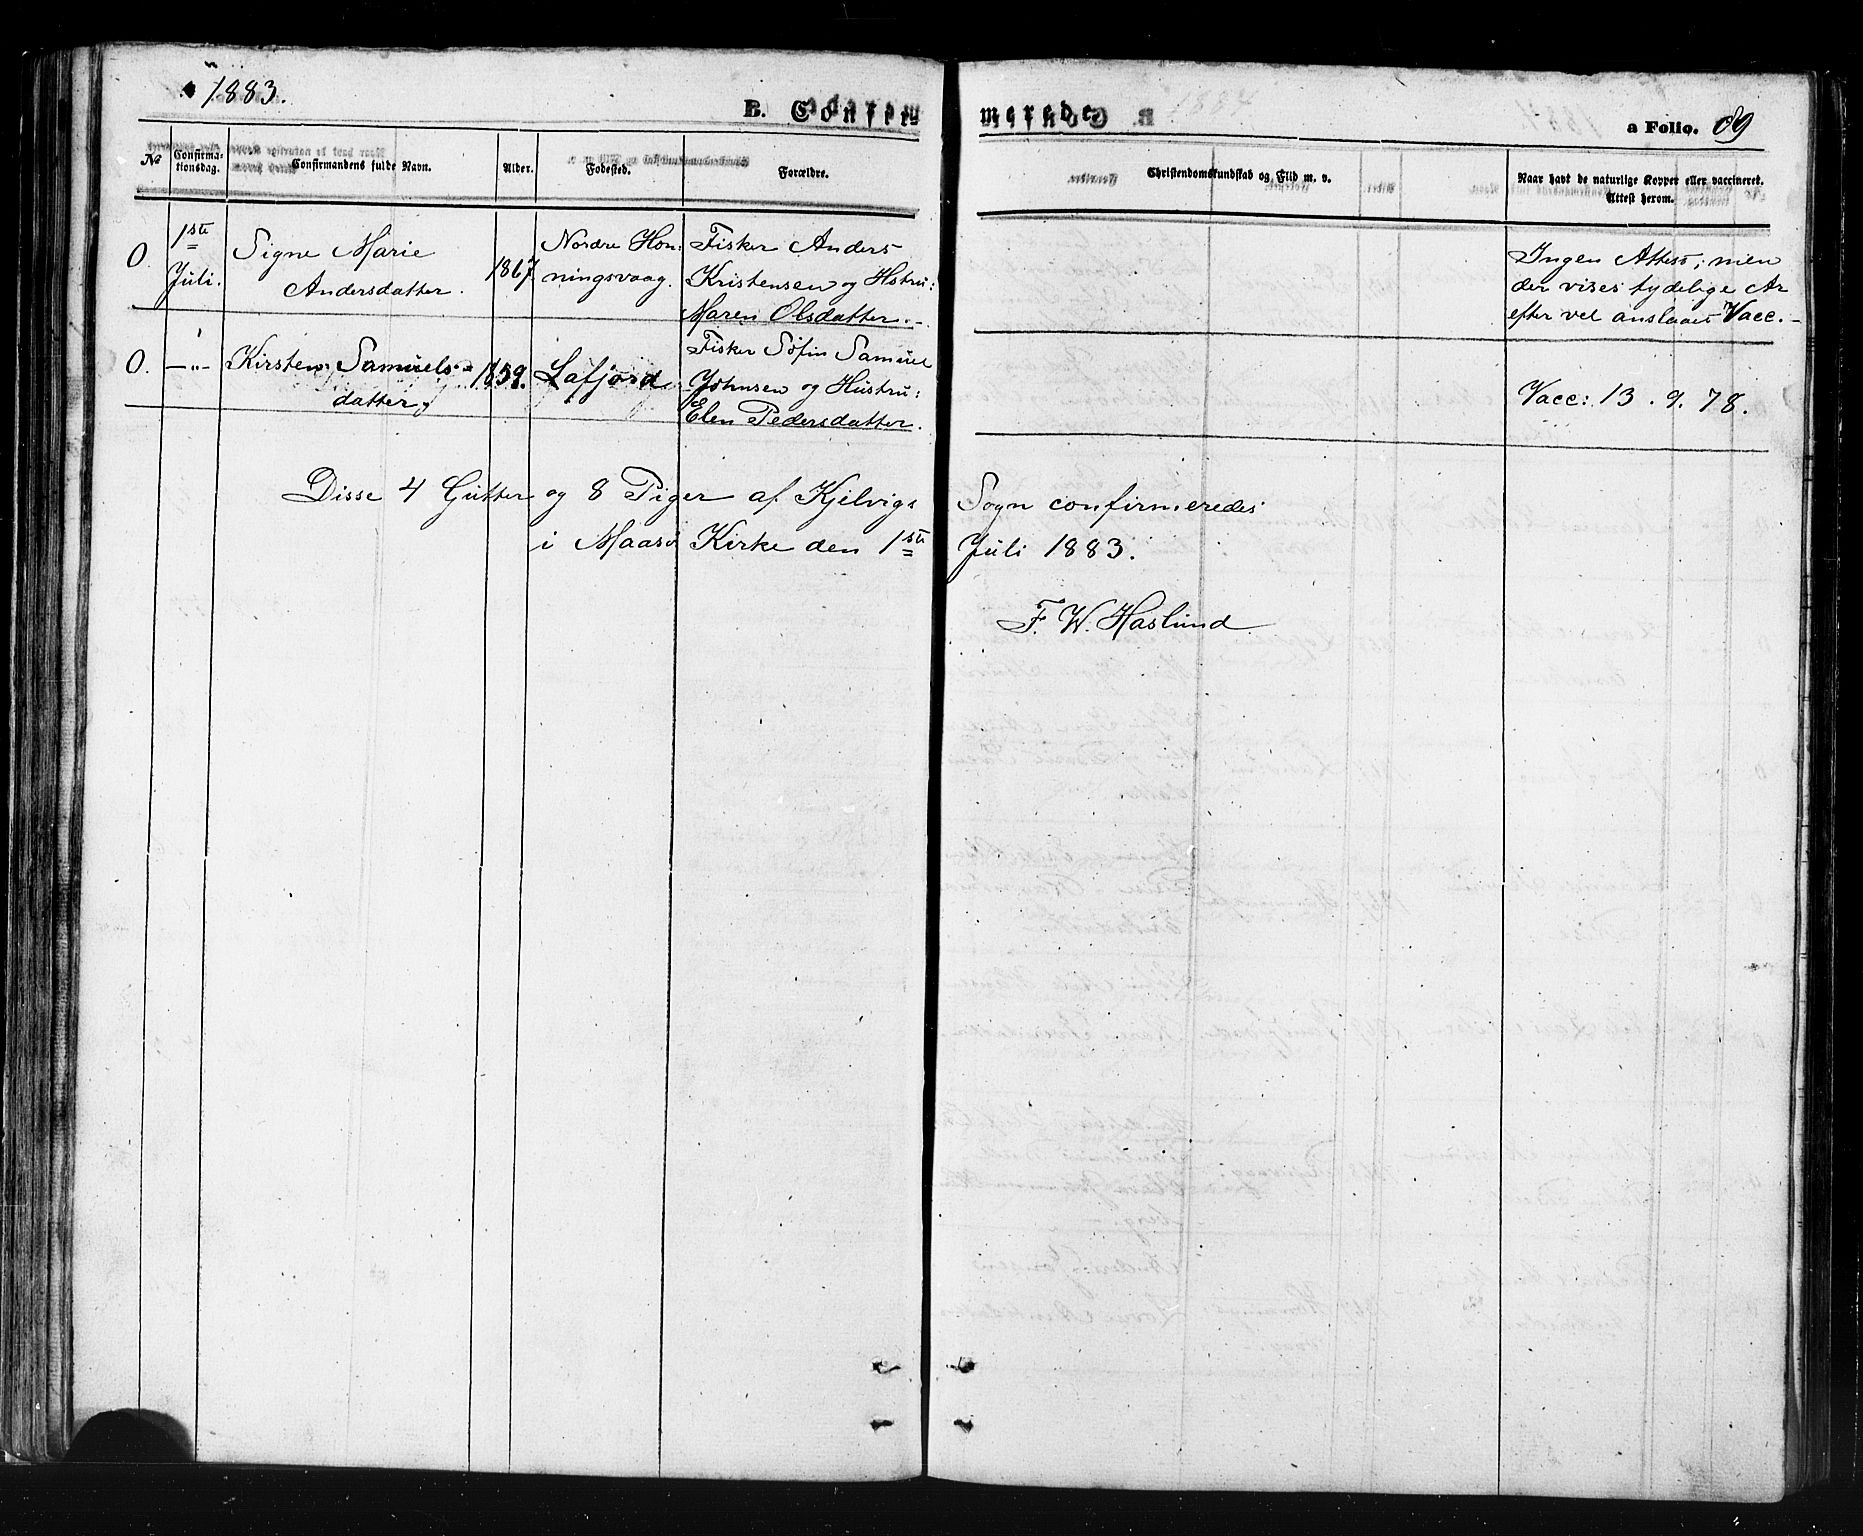 1883.
B. Confirmerede.
a Folio. 89
No Confirmationsdag. Confirmandens fulde Navn. Alder. Fødested. Forældre. Christendomskundskab og Flid m. v. Naar havt de naturlige Kopper eller vaccineret. Attest herom.
1ste Nordre Hon: Fisker Anders Ingen Attest; men
0. Signe Marie 1867 Kristensen og Hstru:
Juli. Andersdatter. ningsvaag. der vises tydelige Ar
Maren Olsdatter. efter vel anslaaet Vacc.
Fisker Søfin Samuel
0. —"— Kirsten Samuels- 1859. Lafjord Johnsen og Hustru: Vacc: 13. 9. 78.
datter.
Elen Pedersdatter.
Disse 4 Gutter og 8 Piger af Kjelvigs Sogn confirmeredes
i Maasø Kirke den 1ste Juli 1883.
F. W. Haslund